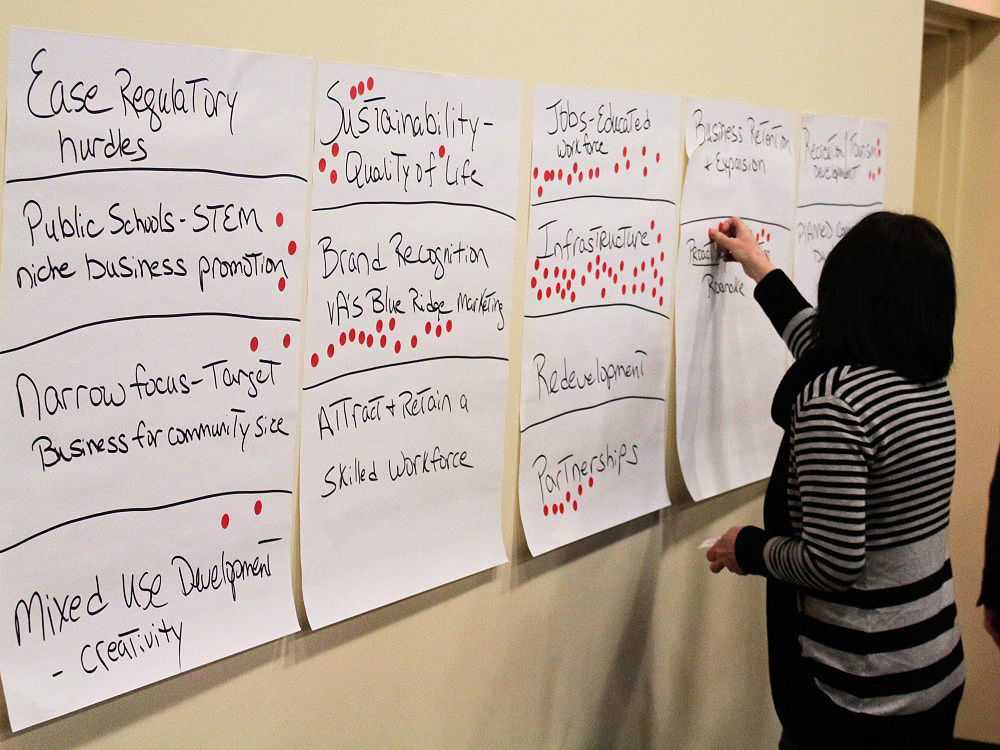 Ease Regulatory
hurdles
Public Schools - STEM
niche business promotion
Narrow focus - Target
Business for community size
Mixed Use Development
- creativity
Sustainability -
Quality of Life
Brand Recognition
VA's Blue Ridge marketing
Attract + Retain a
skilled workforce
Jobs - Educated
workforce
Infrastructure
Redevelopment
Partnerships
Business Retention
+ Expansion
Roanoke
Recreation/Tourism
Development
Planned